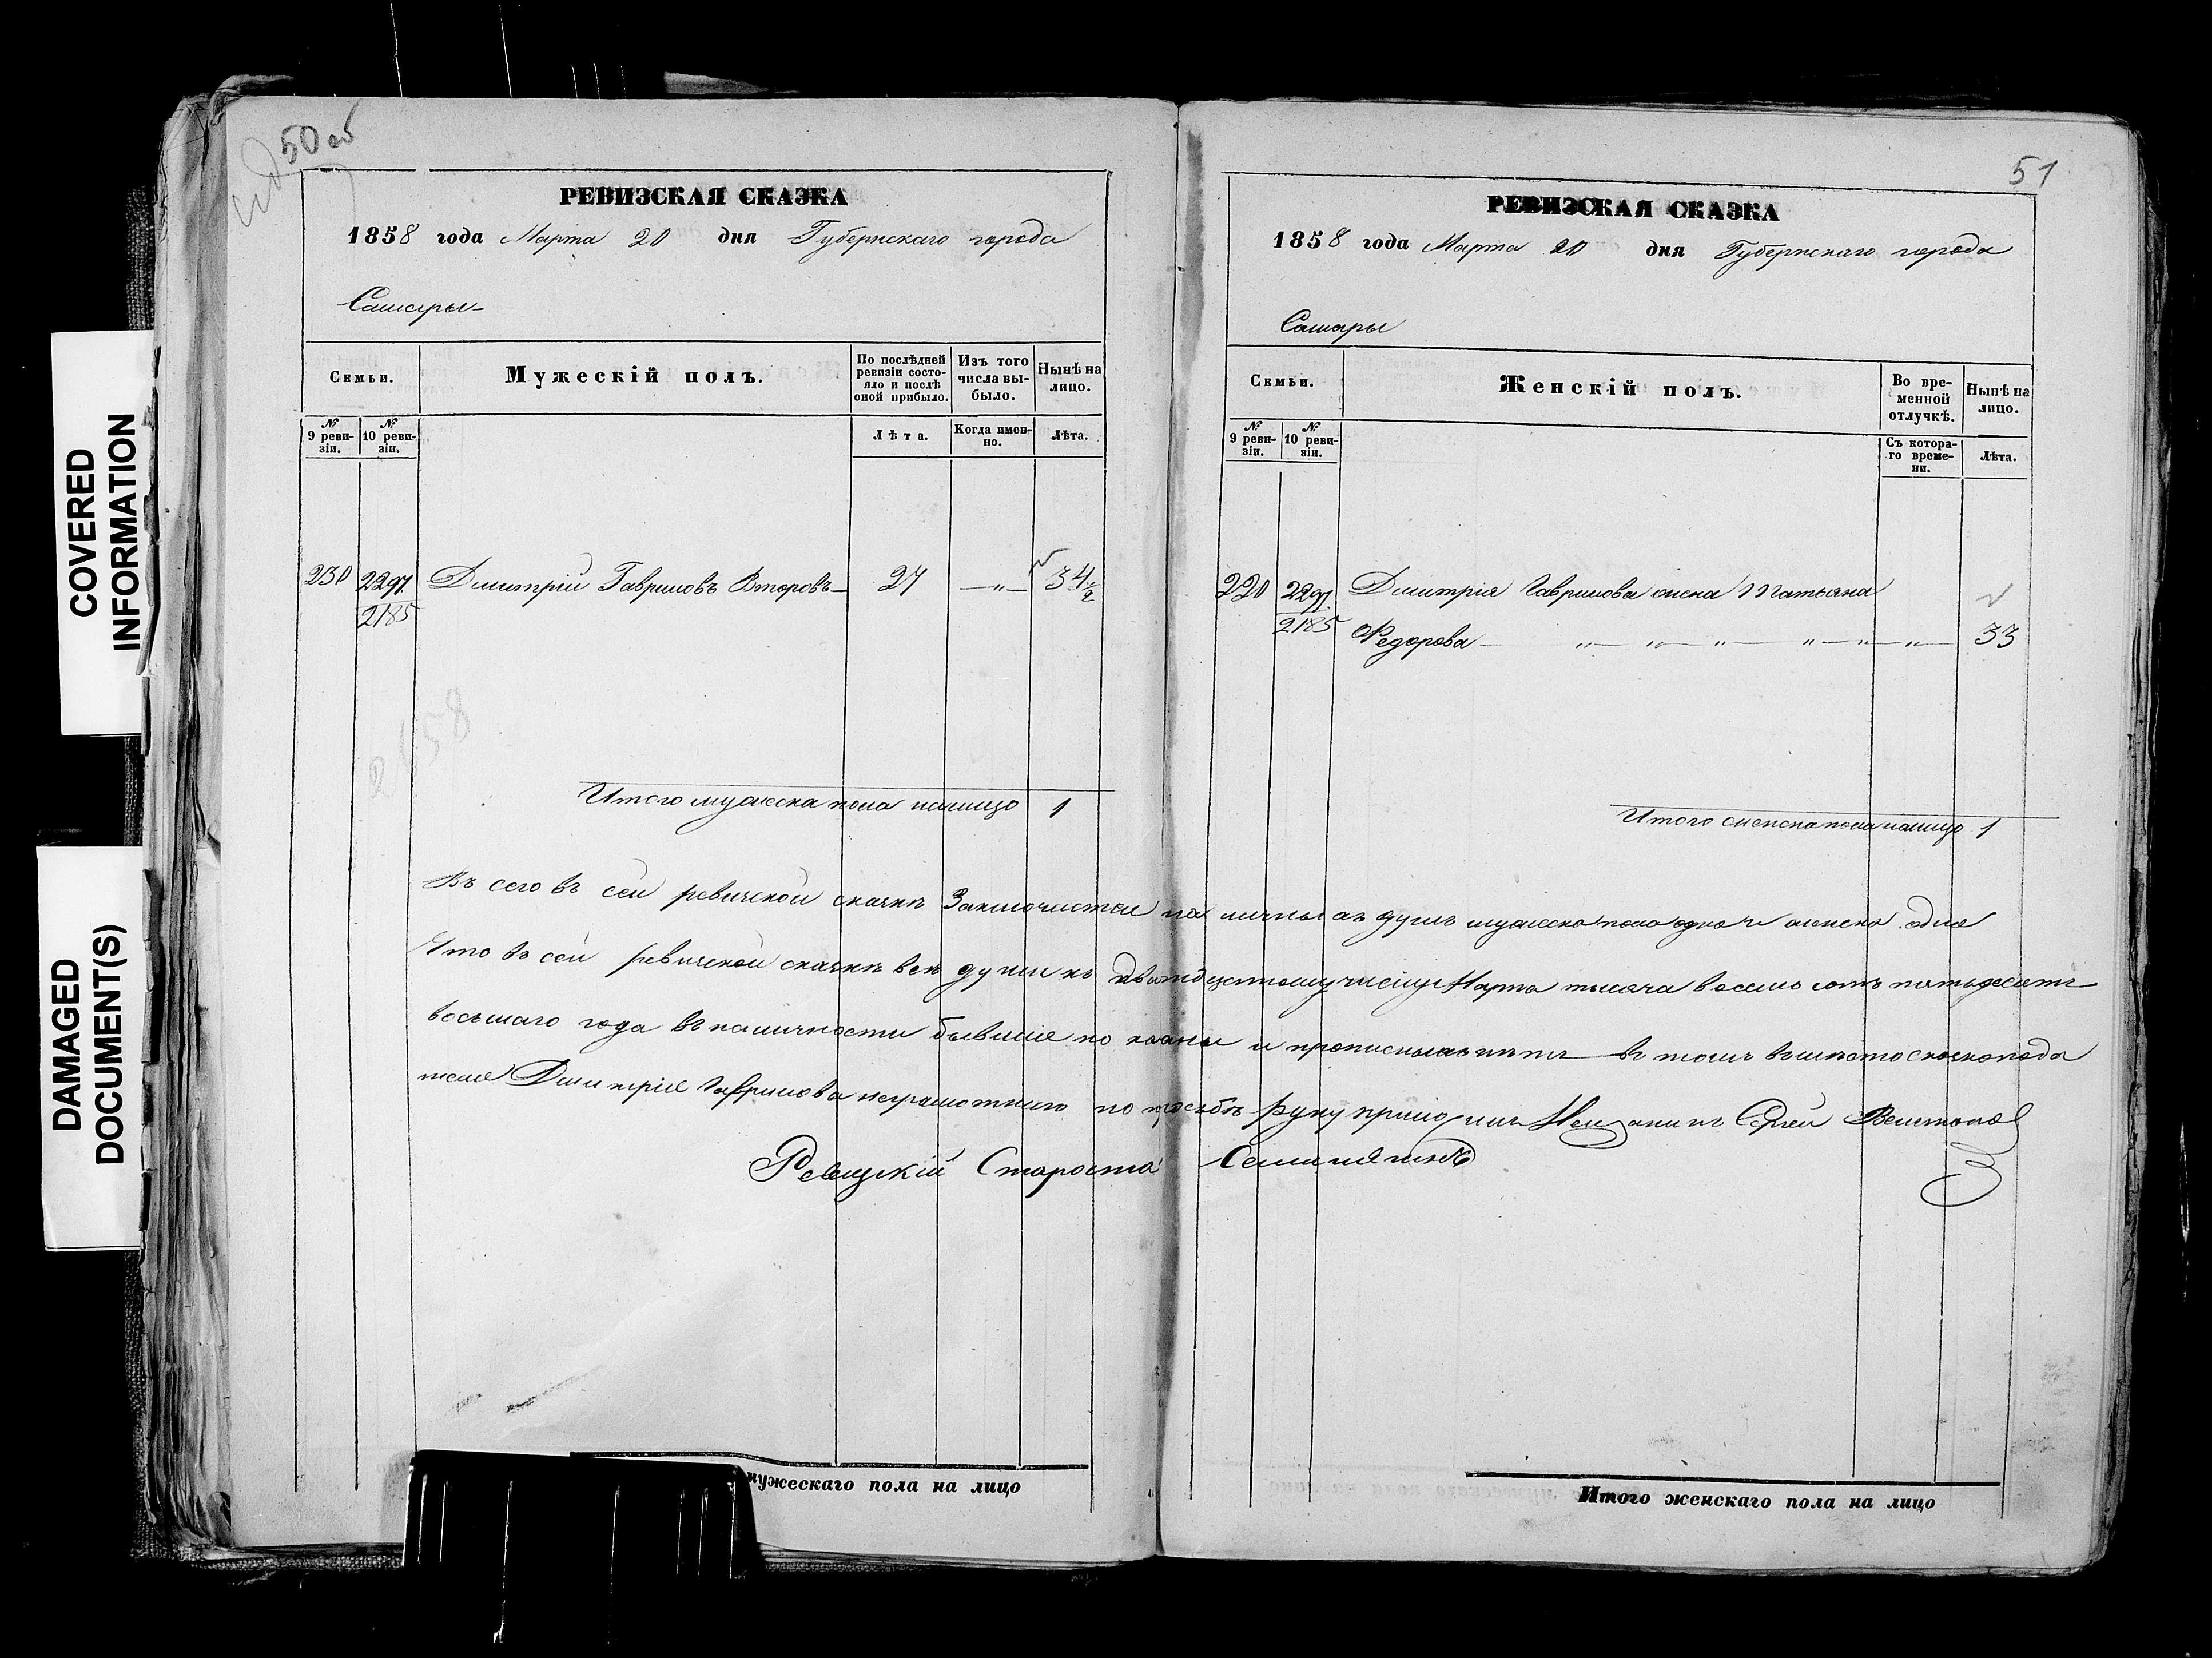 50 об
РЕВИЗСКАЯ СКАЗКА
1858 года Марта 20 дня Губернскаго города
Самары
Семьи.
Мужескій полъ.
По послѣдней ревизіи состояло и послѣ оной прибыло.
Изъ того числа выбыло.
Нынѣ на лицо.
№ 9 ревизіи.
№ 10 ревизіи.
Лѣта.
Когда именно.
Лѣта.
230 2297. Дмитрій Гавриловъ Второвъ 27 —"— 34½
2185
2158
Итого мужеска пола налицо 1
51
РЕВИЗСКАЯ СКАЗКА
1858 года Марта 20 дня Губернскаго города
Самары
Семьи.
Женскій полъ.
Во временной отлучкѣ.
Нынѣ на лицо.
№ 9 ревизіи.
№ 10 ревизіи.
Съ котораго времени.
Лѣта.
220 2297. Дмитрія Гаврилова жена Татьяна
2185 Федорова — " — " — " — " — " — " — 33
Итого женска пола налицо 1
Въ сего въ сей ревиской скаскѣ Заключается на личныхъ душъ мужска пола одна и женска одна
Что въ сей ревиской скаскѣ всѣ души къ дватцатому числу Марта тысяча восемь сотъ пятьдесятъ
восьмаго года въ наличности бывшіе по казаны и прописныхъ нѣтъ въ томъ вмѣсто скаскопода
теля Дмитрія Гаврилова неграмотнаго по прозьбѣ руку приложилъ Мещанинъ Сергей
Ревизкій Староста
мужескаго пола на лицо
Итого женскаго пола на лицо
COVERED INFORMATION
DAMAGED DOCUMENT(S)